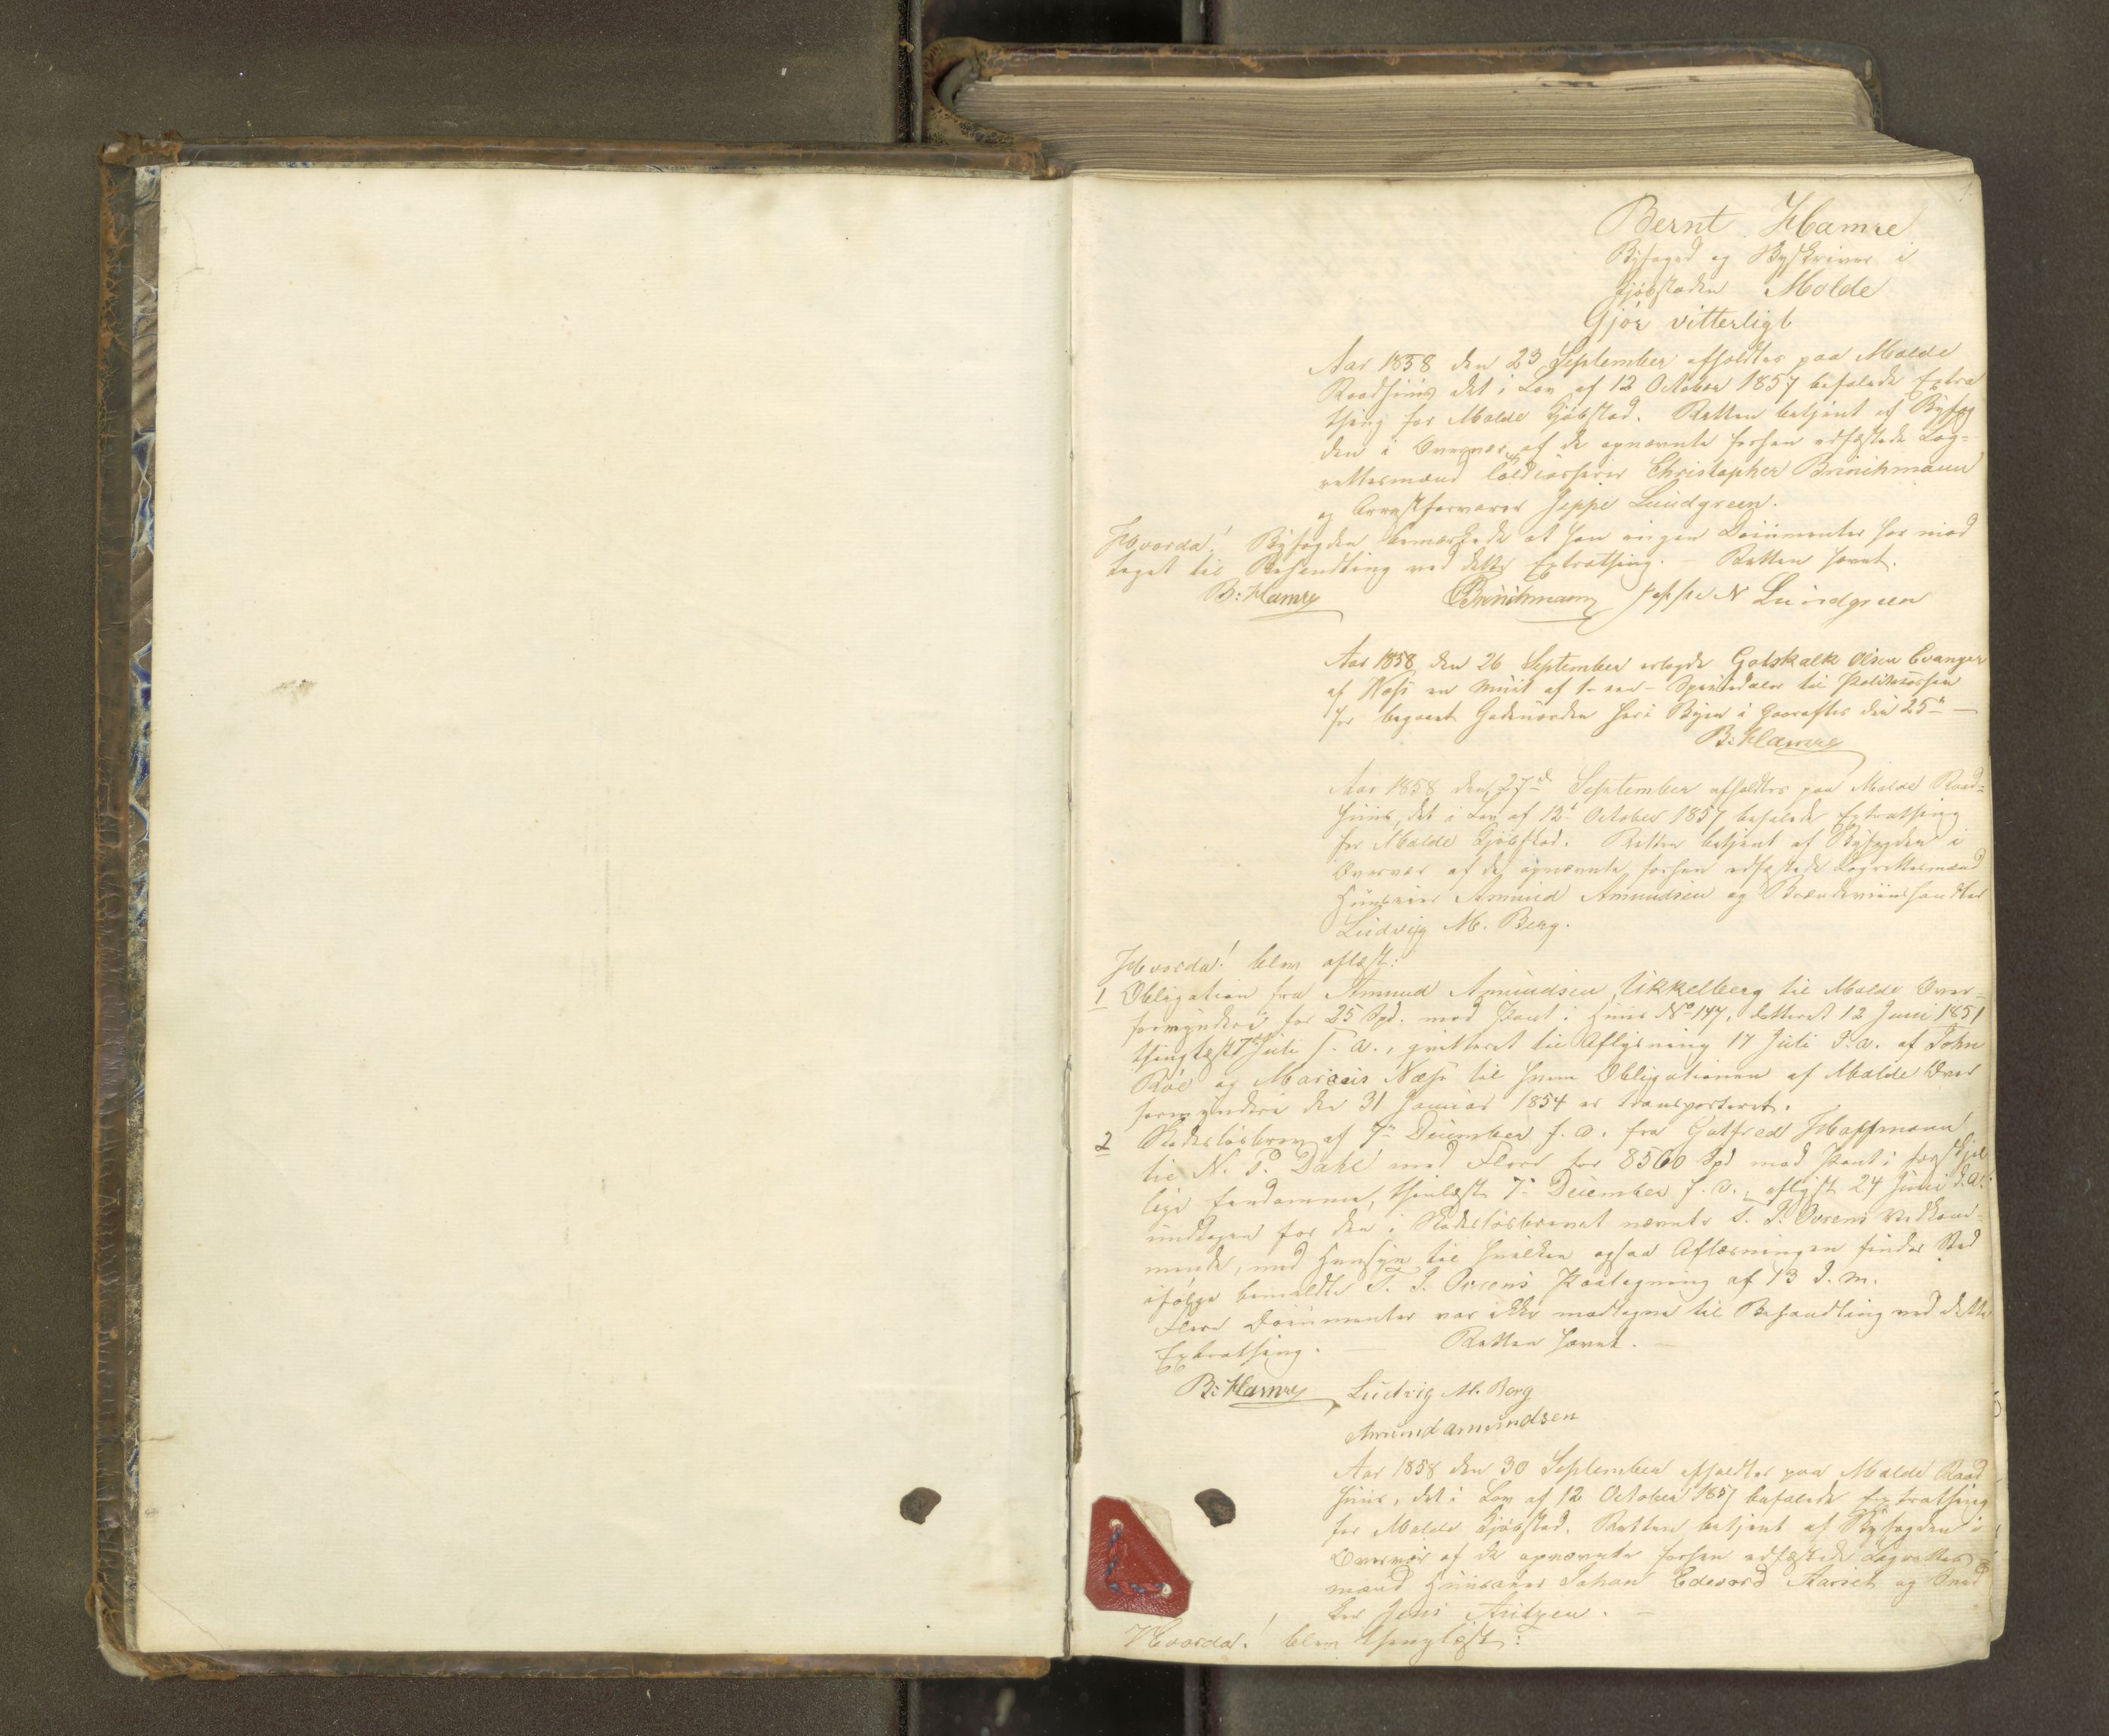 Bernt Hamre
Byfoged og Byskriver i
Kjøbstaden Molde
Gjør vitterligt
Aar 1858 den 23 September afholdtes paa Molde
Raadhuus det i Lov af 12 October 1857 befalede Extra
thing for Molde Kjøbstad. Retten betjent af Byfog
den i Overvær af de opnævnte forhen edfæstede Lag=
rettesmænd Christopher Brinchmann
og Arrestforvarer Jeppe Lundgreen.
Hvorda! Byfogden bemærkede at han ingen Documenter har mod
taget til Behandling ved dette Extrathing. – Retten hævet.
B: Hamre Brinchmann Jeppe N Lundgreen
Aar 1858 den 26 September erlagde Gotskalk Olsen Evanger
af Woss en Mulct af 1- een – Speciedaler til Politikassen
for begaaet Gadeuorden her i Byen i Gaaraftes den 25de –
B: Hamre
Aar 1858 den 27de September afholdtes paa Molde Raad=
huus, det i Lov af 12t October 1857 befalede Extrathing
for Molde Kjøbstad. Retten betjent af Byfogden i
Overvær af de opnævnte forhen edfæstede Lagrettesmænd
Huuseier Amund Amundsen og Brændeviinshandler
Ludvig M. Berg.
Hvorda! blev aflæst:
1 Obligation fra Amund Amundsen Ukkelberg til Molde Over-
formynderi for 25 Spd. med Pant i Huus No 147, datteret 12 Juni 1851
thinglæst 7 Juli s. A., qvitteret til Aflysning 17 Juli d. A. af John
Röe og Marcus Næss til hvem Obligationen af Molde Over
formynderi den 31 Januar 1854 er transporteret.
2 Skadesløsbrev af 7de December f. A. fra Gotfred Hoffmann
til N. P. Dahl med Flere for 8560 Spd med Pant i forskjel
lige Eiendomme, thinlæst 7de December f. A., aflyst 24 Juni d. A:
undtagen for den i Skadesløsbrevet nævnte T. J. Owrens Vedkom=
mende, med Hensyn til hvilken ogsaa Aflæsningen finder Sted
ifølge bemeldte T. J. Owrens Paategning af 13 d. M.
Flere Documenter var ikke modtagne til Behandling ved dette
Extrathing. – Retten hævet. –
B: Hamre Ludvig M. Berg
Amund Amundsen
Aar 1858 den 30 September afholdtes paa Molde Raad
huus, det i Lov af 12 October 1857 befalede Extrathing
for Molde Kjøbstad. Retten betjent af Byfogden i
Overvær af de opnævnte forhen edfæstede Lagrettes
mænd Huuseier Johan Edevard Aarset og Sned
ker Jens –
Hvorda! blev thinglæst: